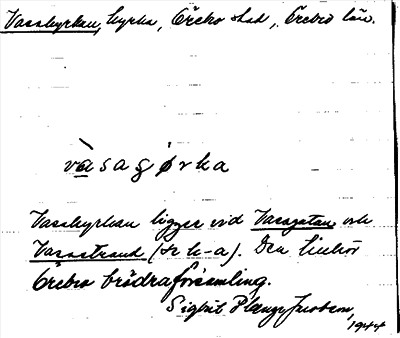 Vasakyrkan, kyrka, Örebro stad, Örebro län.
vàsaçørka
Vasakyrkan ligger vid Vasagatan och
Vasastrand (se k-a). Den tillhör
Örebro brödraförsamling.
Sigbrit Plænge Jacobson,
1944